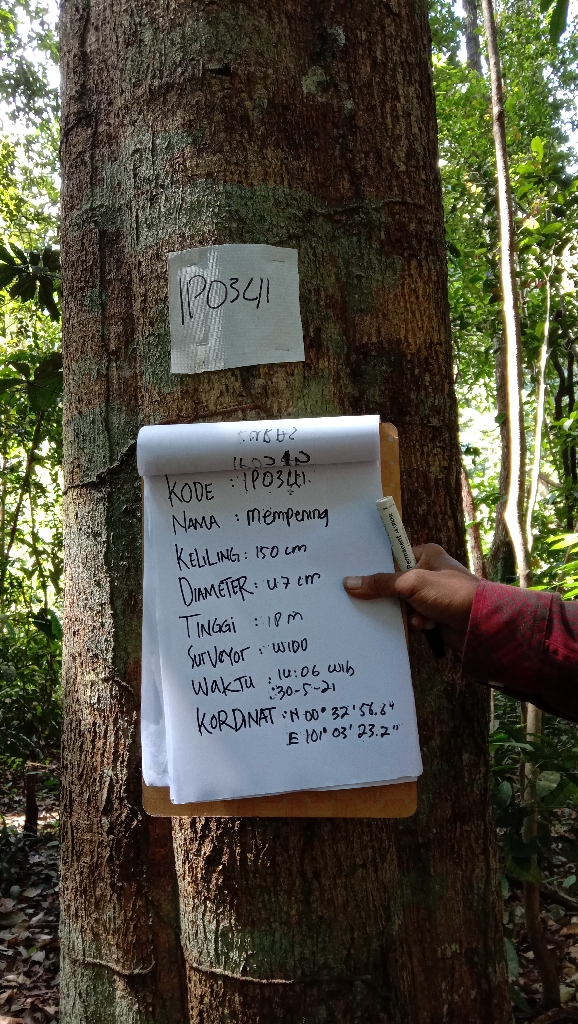 IP0341
KODE : IP0341
NAMA : Mempening
KELILING : 150 cm
DIAMETER : 47 cm
TINGGI : 18 m
SURVeyor : WIDO
WAKTU : 14:06 WIb
:30-5-21
KORDINAT : N 00° 32' 56.6"
E 101° 03' 23.2"